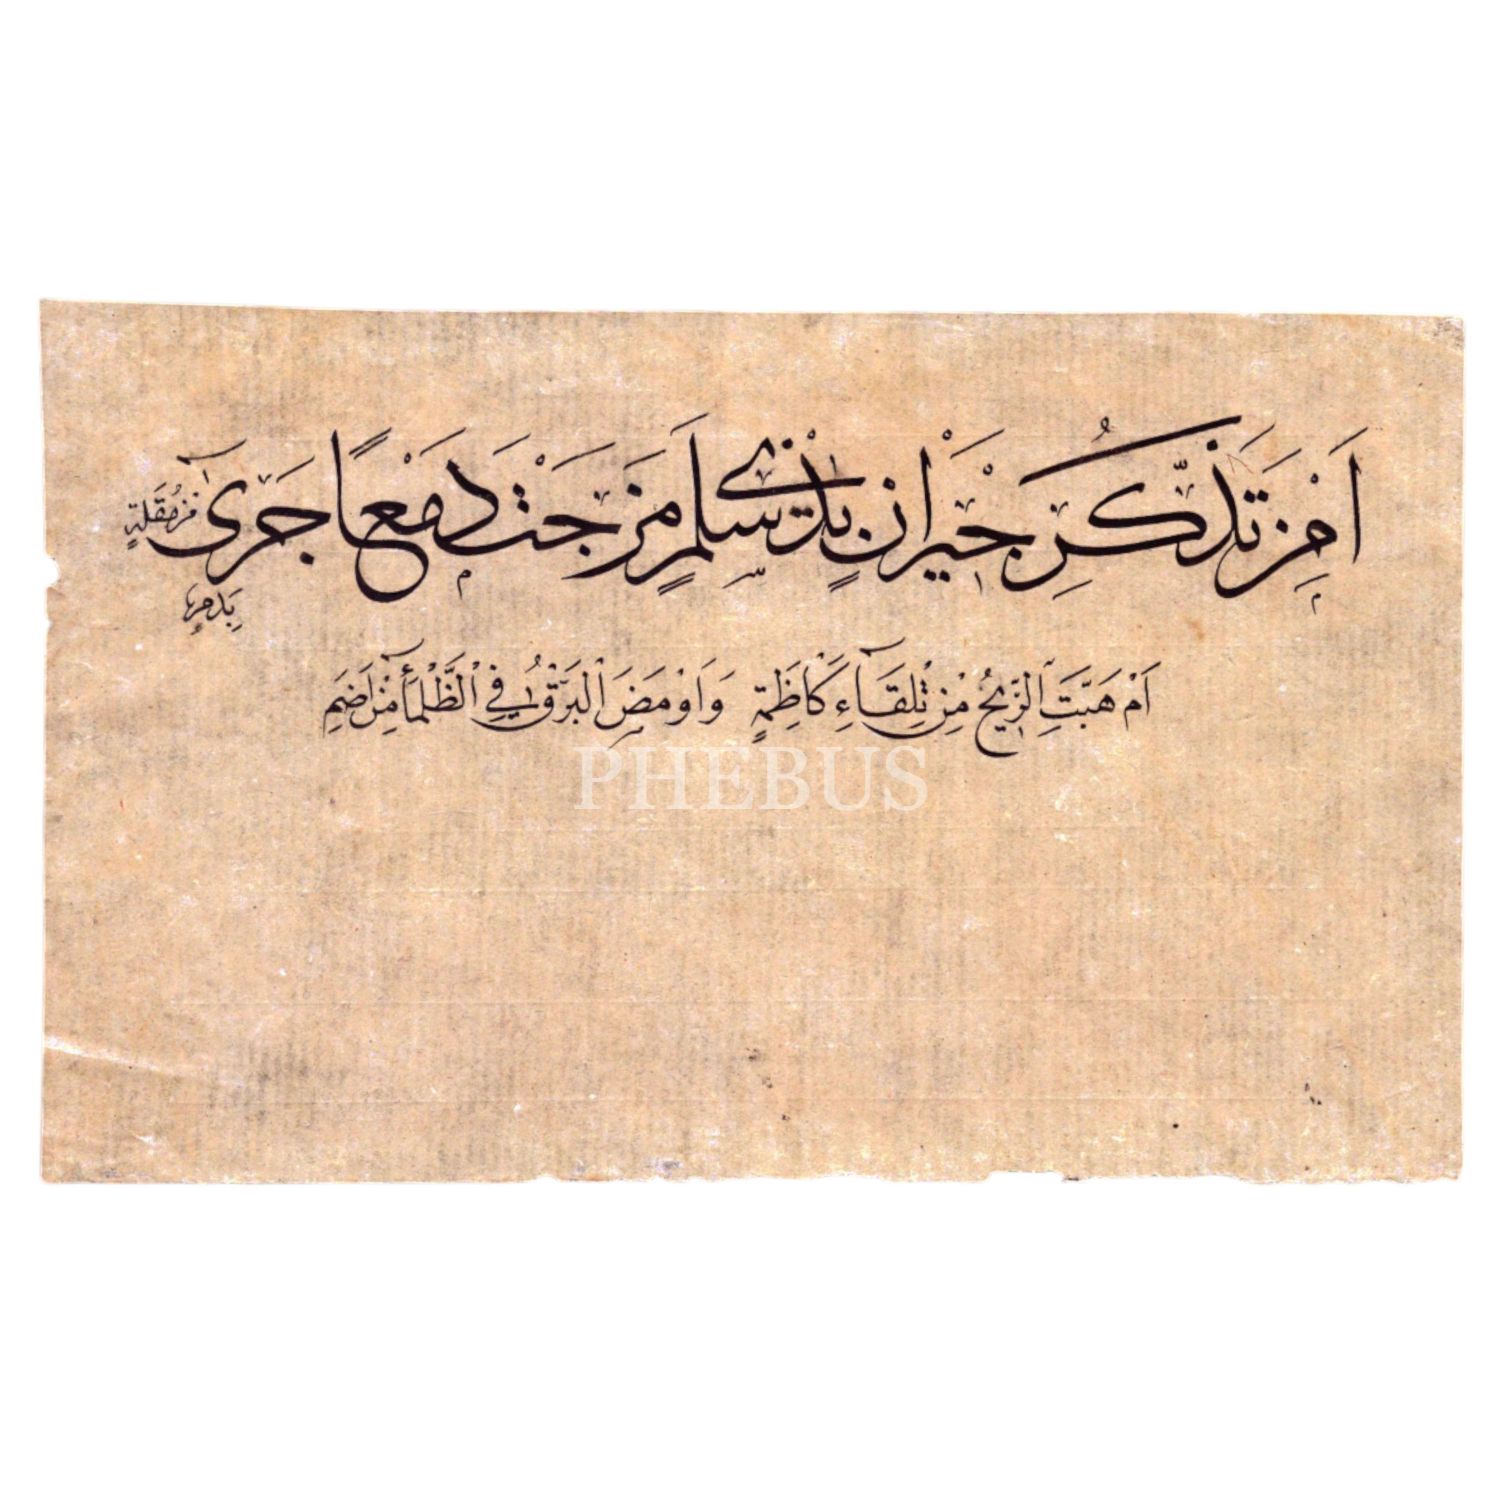 اَمِنْ تَذَكُّرِ جِيْرَانٍ بِذِيْ سَلَمٍ مَزَجْتَ دَمْعًا جَرٰى مِنْ مُقْلَةٍ
بِدَمِ
اَمْ هَبَّتِ الرّٖيحُ مِنْ تِلْقَاۤءِ كَاظِمَةٍ وَاَوْمَضَ الْبَرْقُ فِي الظَّلْمَاۤءِ مِنْ اِضَمِ
PHEBUS